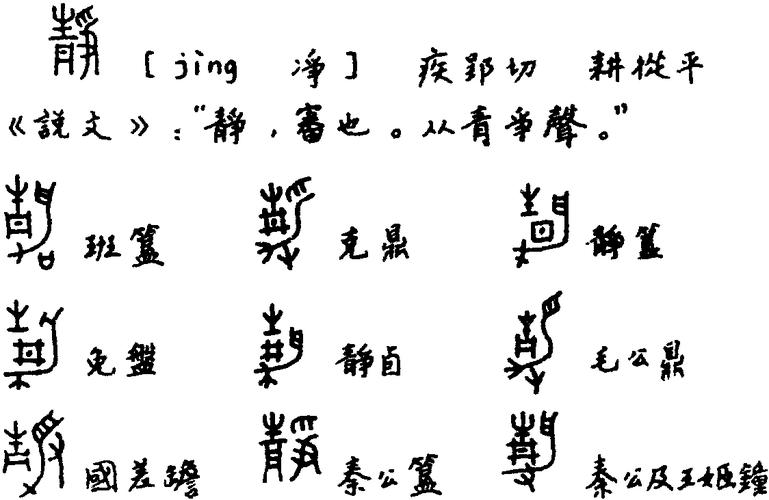 靜 [jìng 淨] 疾郢切 耕從平
《說文》："靜，審也。从青爭聲。"
班簋 克鼎 靜簋
免盤 靜卣 毛公鼎
國差𦉜 秦公簋 秦公及王姬鐘